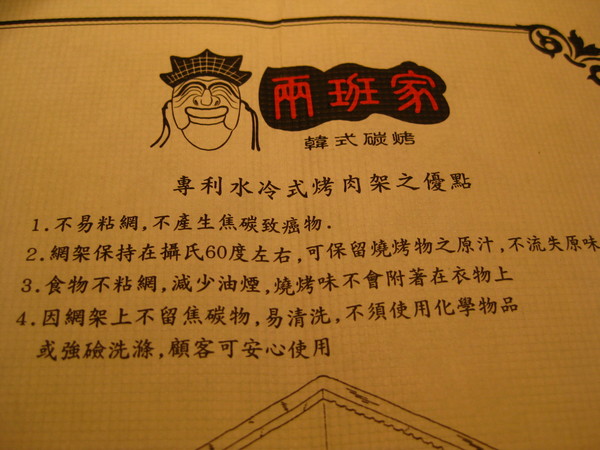 兩班家
韓式碳烤
專利水冷式烤肉架之優點
1.不易粘網,不產生焦碳致癌物.
2.網架保持在攝氏60度左右,可保留燒烤物之原汁,不流失原味
3.食物不粘網,減少油煙,燒烤味不會附著在衣物上
4.因網架上不留焦碳物,易清洗,不須使用化學物品
或強鹼洗滌,顧客可安心使用